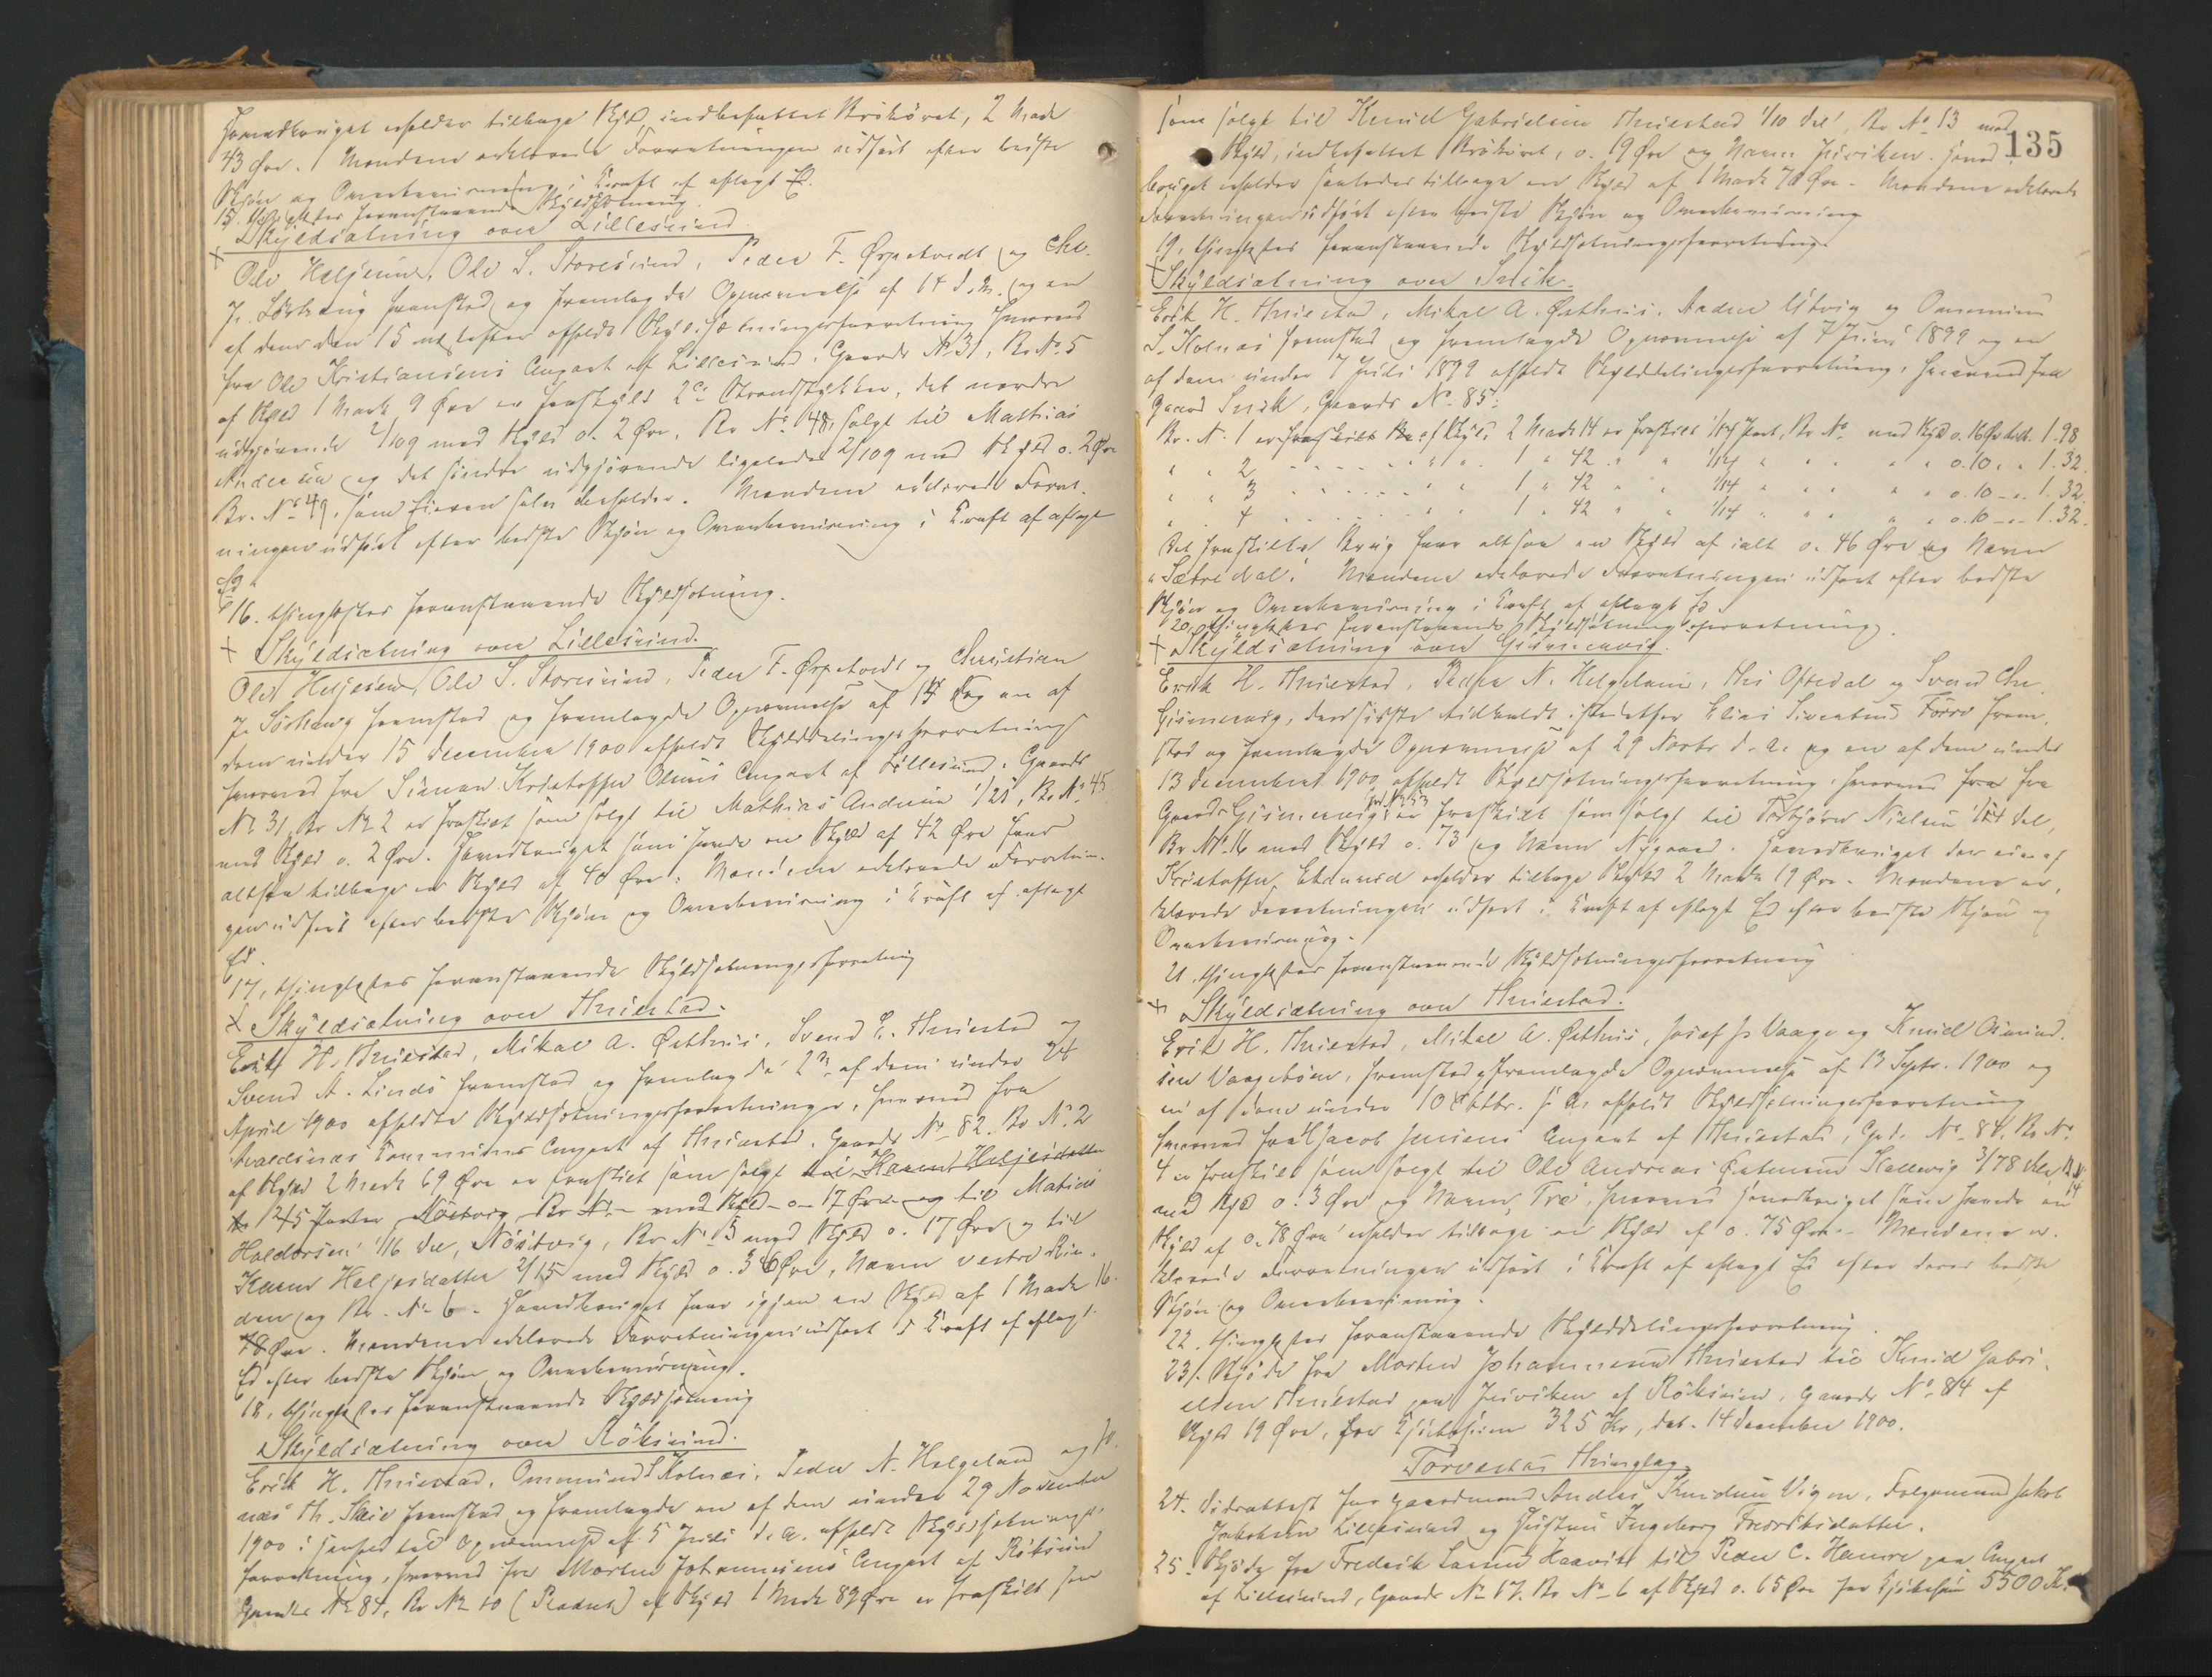 Hovedbruget beholder tilbage Skyld, indbefattet Brökövet, 2 Mark
43 Øre. Mændene erklærede Forretningen udført efter bedste
Skjøn og Overbevisning i Kraft af aflagt Ed.
15, thinglystes foranstaaende Skyldsætning.
+ Skyldsætning over Lillesund
Ole Heljesen, Ole S. Storesund, Peder F. Ørpetvedt og Chr.
J. Sörhaug fremstod og fremlagde Opnævnelse af 14 d. M. og en
af dem den 15 næstefter afholdt Skyldsætningsforretning hvorved
fra Ole Kristiansens Anpart af Lillesund, Gaards No 31, Br. No 5
af Skyld 1 Mark 9 Øre er fraskilt 2de Strandstykker, det nordre
udgjørende 2/109 med Skyld o. 2 Øre, Br No 48, solgt til Mathias
Andersen og det søndre udgjørende ligeledes 2/109 med Skyld o. 2 Øre
Br. No 49, som Eieren selv beholder. Mændene erklærede Forret-
ningen udført efter bedste Skjøn og Overbevisning i Kraft af aflagt
Ed.
16. thinglystes foranstaaende Skyldsætning.
+ Skyldsætning over Lillesund.
Ole Heljesen, Ole S. Storesund, Peder F. Ørpetvedt og Christian
J. Sörhaug fremstod og fremlagde Opnævnelse af 14 og en af
dem under 15 December 1900 afholdt Skylddelingsforretning
hvorved fra Simon Kristoffer Olsens Anpart af Lillesund, Gaards
No 31, Br No 2 er fraskilt som solgt til Mathias Andersen 1/21, Br. No 45
med Skyld o. 2 Øre. Hovedbruget som havde en Skyld af 42 Øre faar
altsaa tilbage en Skyld af 40 Øre. Mændene erklærede Forretnin-
gen udført efter bedste Skjøn og Overbevisning i Kraft af aflagt
Ed.
17, thinglystes foranstaaende Skyldsætningsforretning
+ Skyldsætning over Thuestad.
Erik H. Thuestad, Mikal A. Østhus, Svend E. Thuestad og
Svend A. Lindö fremstod og fremlagde 2de af dem under 24
April 1900 afholdte Skyldsætningsforretninger, hvorved fra
Avaldsnes Kommunes Anpart af Thuestad, Gaards No 82. Br No 2
af Skyld 2 Mark 69 Øre er fraskilt som solgt til Karen Heljesdatter
1 2/15 Parter Nöstvig Br No - med Skyld o- 17 Øre og til Matias
Haldorsen 1/16 Del, Nöstvig, Br No 5 med Skyld o. 17 Øre og til
Karen Heljesdatter 2/15 med Skyld o. 36 Øre, Navn vestre Rin-
den og Br. No 6. Hovedbruget faar igjen en Skyld af 1 Mark 16
Øre. Mændene erklærede Forretningen udført i Kraft af aflagt
Ed efter bedste Skjøn og Overbevisning.
18, thinglystes foranstaaende Skyldsætning
Skyldsætning over Röksund.
Erik H. Thuestad, Ommund S. Kolnes, Peder N. Helgeland og Jo-
nas Th. Skeie fremstod og fremlagde en af dem under 29 November
1900 i Henhold til Opnævnelse af 5 Juli d. A. afholdt Skyldsætnings-
forretning, hvorved fra Morten Johannesens Anpart af Röksund
Gaards No 84, Br No 10 (Pladset) af Skyld 1 Mark 89 Øre er fraskilt som
135
som solgt til Knud Gabrielsen Thuestad 1/10 Del, Br No 13 med
Skyld, indbefattet Brökövet, o. 19 Øre og Navn Juviken. Hoved-
bruget beholder saaledes tilbage en Skyld af 1 Mark 70 Øre. Mændene erklærede
Forretningen udført efter bedste Skjøn og Overbevisning
19, thinglystes foranstaaende Skyldsætningsforretning.
+ Skyldsætning over Snik.
Erik H. Thuestad, Mikal A. Østhus, Anders Utvig og Ommund
S. Kolnes fremstod og fremlagde Opnævnelse af 7 Juni 1899 og en
af dem under 7 Juli 1899 afholdt Skylddelingsforretning, hvorved fra
Gaard Snik, Gaards No 85:
Br. No 1 er fraskilt af Skyld 2 Mark 14 er fraskilt 1/14 Part, Br No med Skyld o. 16 Øre 1.98
" " 2 - - - - - - " " 1 " 42 " " 1/14 " " " " o. 10 " " 1.32.
" " 3 - - - - - - " " 1 " 42 " " 1/14 " " " " o. 10 - " 1.32.
" " 4 - - - - - - " " 1 " 42 " " 1/14 " " " " o. 10 - " 1.32.
Det fraskilte Brug faar altsaa en Skyld af ialt o. 46 Øre og Navn
"Sætredal". Mændene erklærede Forretningen udført efter bedste
Skjøn og Overbevisning i Kraft af aflagt Ed.
20, thinglystes foranstaaende Skyldsætningsforretning.
+ Skyldsætning over Gismervig.
Erik H. Thuestad, Peder N. Helgeland, Ths Oftedal og Svend Chr.
Gismervig, den sidste tilkaldt istedetfor Elias Sivertsen Förre frem-
stod og fremlagde Opnævnelse af 29 Novbr d. A. og en af dem under
13 December 1900 afholdt Skyldsætningsforretning, hvorved fra
Gaard Gismervig No 53 er fraskilt som solgt til Torbjörn Nielsen 1/4 Del,
Br No 16 med Skyld o. 73 og Navn Nygaard. Hovedbruget der eies af
Kristoffer Edvard beholder tilbage Skyld 2 Mark 19 Øre. Mændene er-
klærede Forretningen udført i Kraft af aflagt Ed efter bedste Skjøn og
Overbevisning.
21, thinglystes foranstaaende Skyldsætningsforretning
+ Skyldsætning over Thuestad.
Erik H. Thuestad, Mikal A. Østhus, Josef Js Vaage og Knud Osmund-
sen Vaageböen, fremstod og fremlagde Opnævnelse af 13 Septr. 1900 og
en af dem under 10 Oktbr. s. A. afholdt Skyldsætningsforretning
hvorved fra Jacob Jensens Anpart af Thuestad, Grd. No 81. Br No
4 er fraskilt som solgt til Ole Andreas Østensen Kallevig 3/78 Dele Br No 14
med Skyld o. 3 Øre og Navn, Træ, hvorved Hovedbruget som havde en
Skyld af o. 78 Øre beholder tilbage en Skyld af o. 75 Øre. Mændene er-
klærede Forretningen udført i Kraft af aflagt Ed efter deres bedste
Skjøn og Overbevisning.
22. thinglystes foranstaaende Skylddelingsforretning.
23. Skjøde fra Morten Johannesen Thuestad til Knud Gabri-
elsen Thuestad paa Juviken af Röksund, Gaards No 84 af
Skyld 19 Øre, for Kjöbesum 325 Kr, dat. 14 December 1900.
Torvestad Thinglag.
24. Vidnattest for Gaardmand Andres Knudsen Vigen, Folgemand Jakob
Jakobsen Lillesund og Hustru Ingeborg Fredriksdatter.
25. Skjøde fra Fredrik Larsen Haavik til Peder C. Hamre paa Anpart
af Lillesund, Gaards No 17. Br No 6 af Skyld o. 65 Øre for Kjöbesum 5500 Kr.